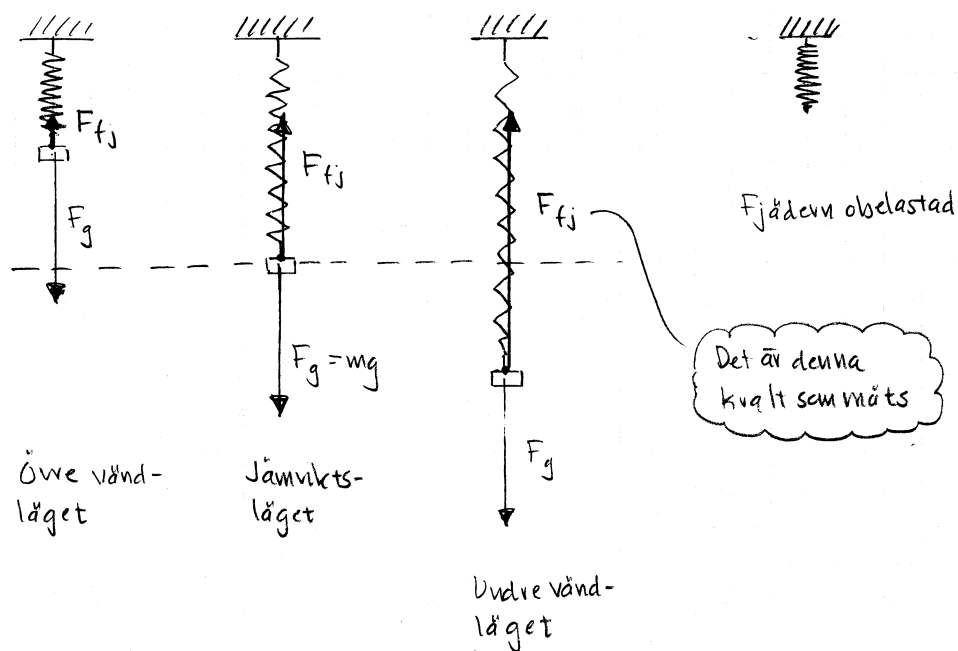 F_fj
F_g
Övre vänd-
läget
F_fj
F_g = mg
Jämvikts-
läget
F_fj
F_g
Undre vänd-
läget
Fjädern obelastad
Det är denna
kraft som mäts